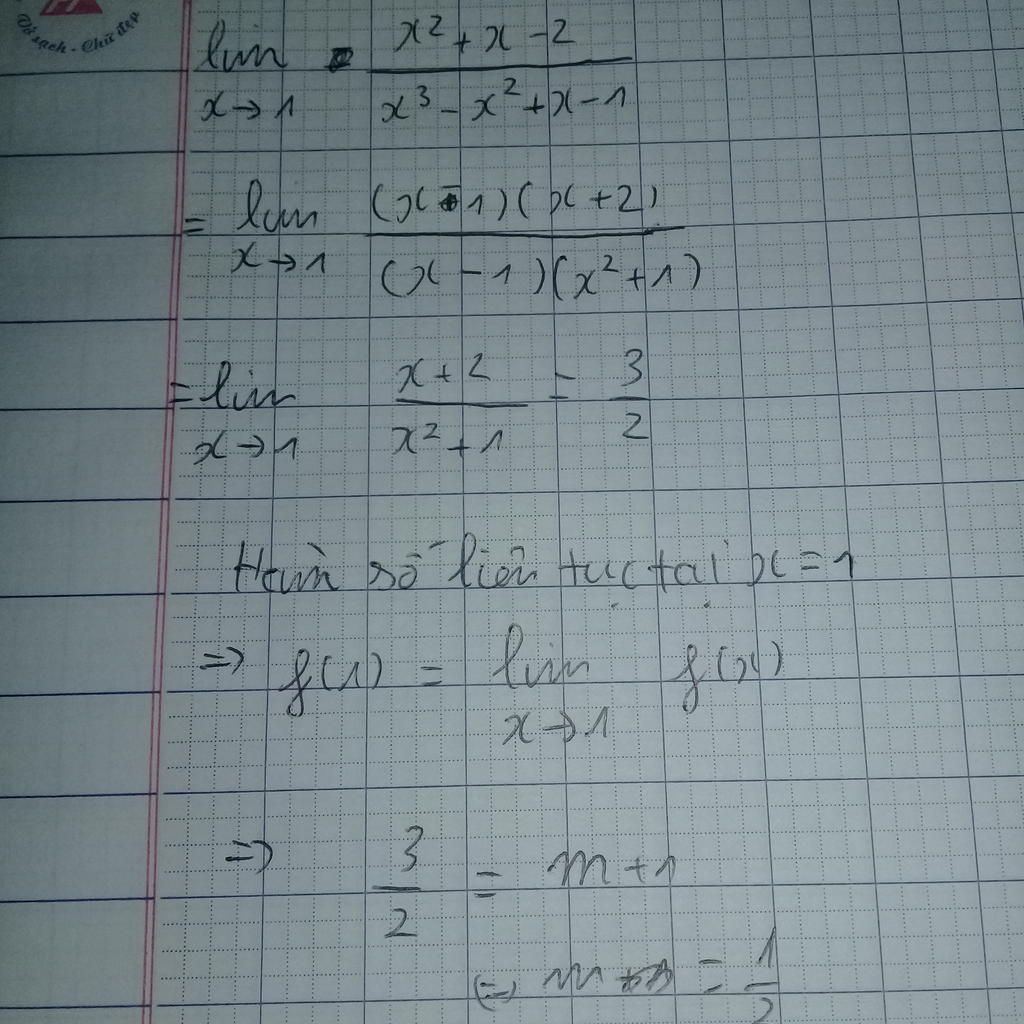 Vở sạch - Chữ đẹp
lim x²+x-2 / x³-x²+x-1
x→1
= lim (x-1)(x+2) / (x-1)(x²+1)
x→1
= lim x+2 / x²+1 = 3/2
x→1
Hàm số liên tục tại x=1
=> f(1) = lim f(x)
x→1
=> 3/2 = m+1
<=> m = 1/2